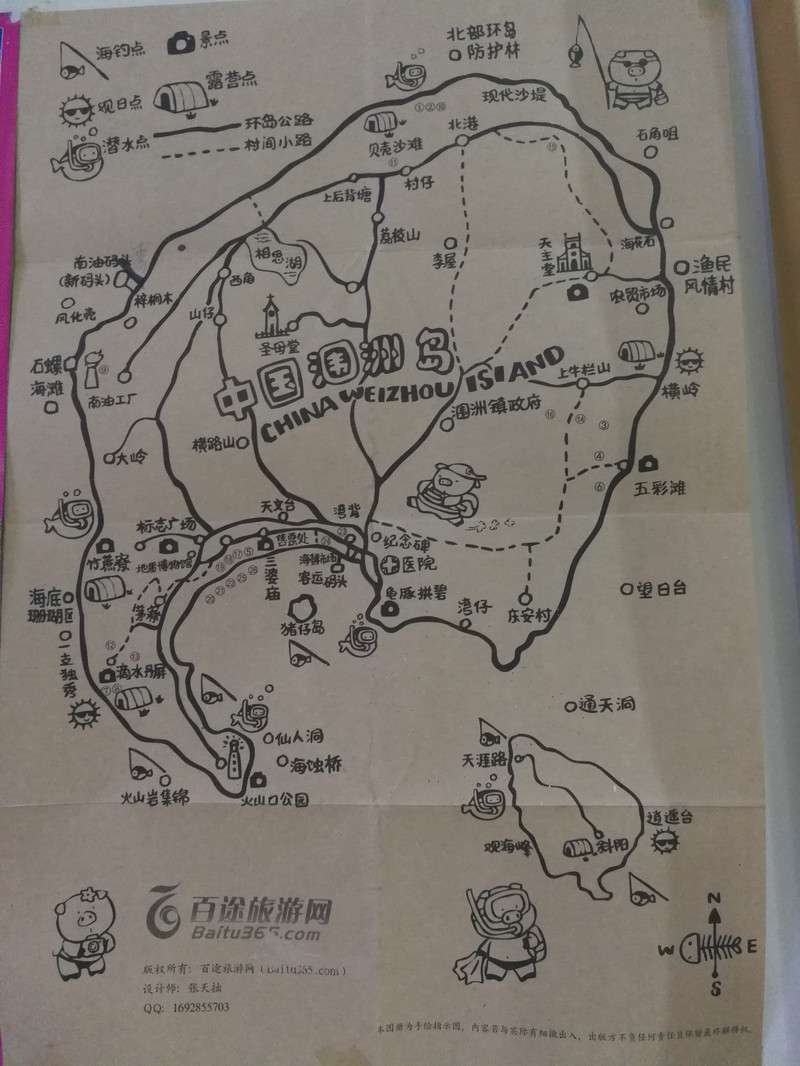 海钓点
景点
北部环岛
防护林
观日点
露营点
现代沙堤
环岛公路
潜水点
村间小路
①②⑩
北港
石角咀
贝壳沙滩
⑪
上后背塘
村仔
荔枝山
李屋
海花石
天主堂
南油码头
(新码头)
相思湖
西角
渔民
风情村
农贸市场
风化壳
梓桐木
山仔
圣母堂
石螺
海滩
南油工厂
中国涠洲岛
CHINA WEIZHOU ISLAND
上牛栏山
横岭
涠洲镇政府
③
⑭
④
⑥
横路山
大岭
五彩滩
天文台
湾背
标志广场
售票处
纪念碑
竹蕉寮
地质博物馆
三婆庙
海鲜市场
客运码头
医院
海底
珊瑚区
茅寮
龟豚拱碧
湾仔
东安村
望日台
猪仔岛
一立独秀
⑫
⑬
滴水丹屏
⑦⑧
通天洞
仙人洞
海蚀桥
天涯路
火山岩集锦
火山口公园
逍遥台
观海峰
斜阳
百途旅游网
Baitu365.com
N
W
E
S
版权所有：百途旅游网（Baitu365.com）
设计师：张天拙
QQ：1692855703
本图册为手绘指示图，内容若与实际有细微出入，出版方不负任何责任且保留最终解释权。